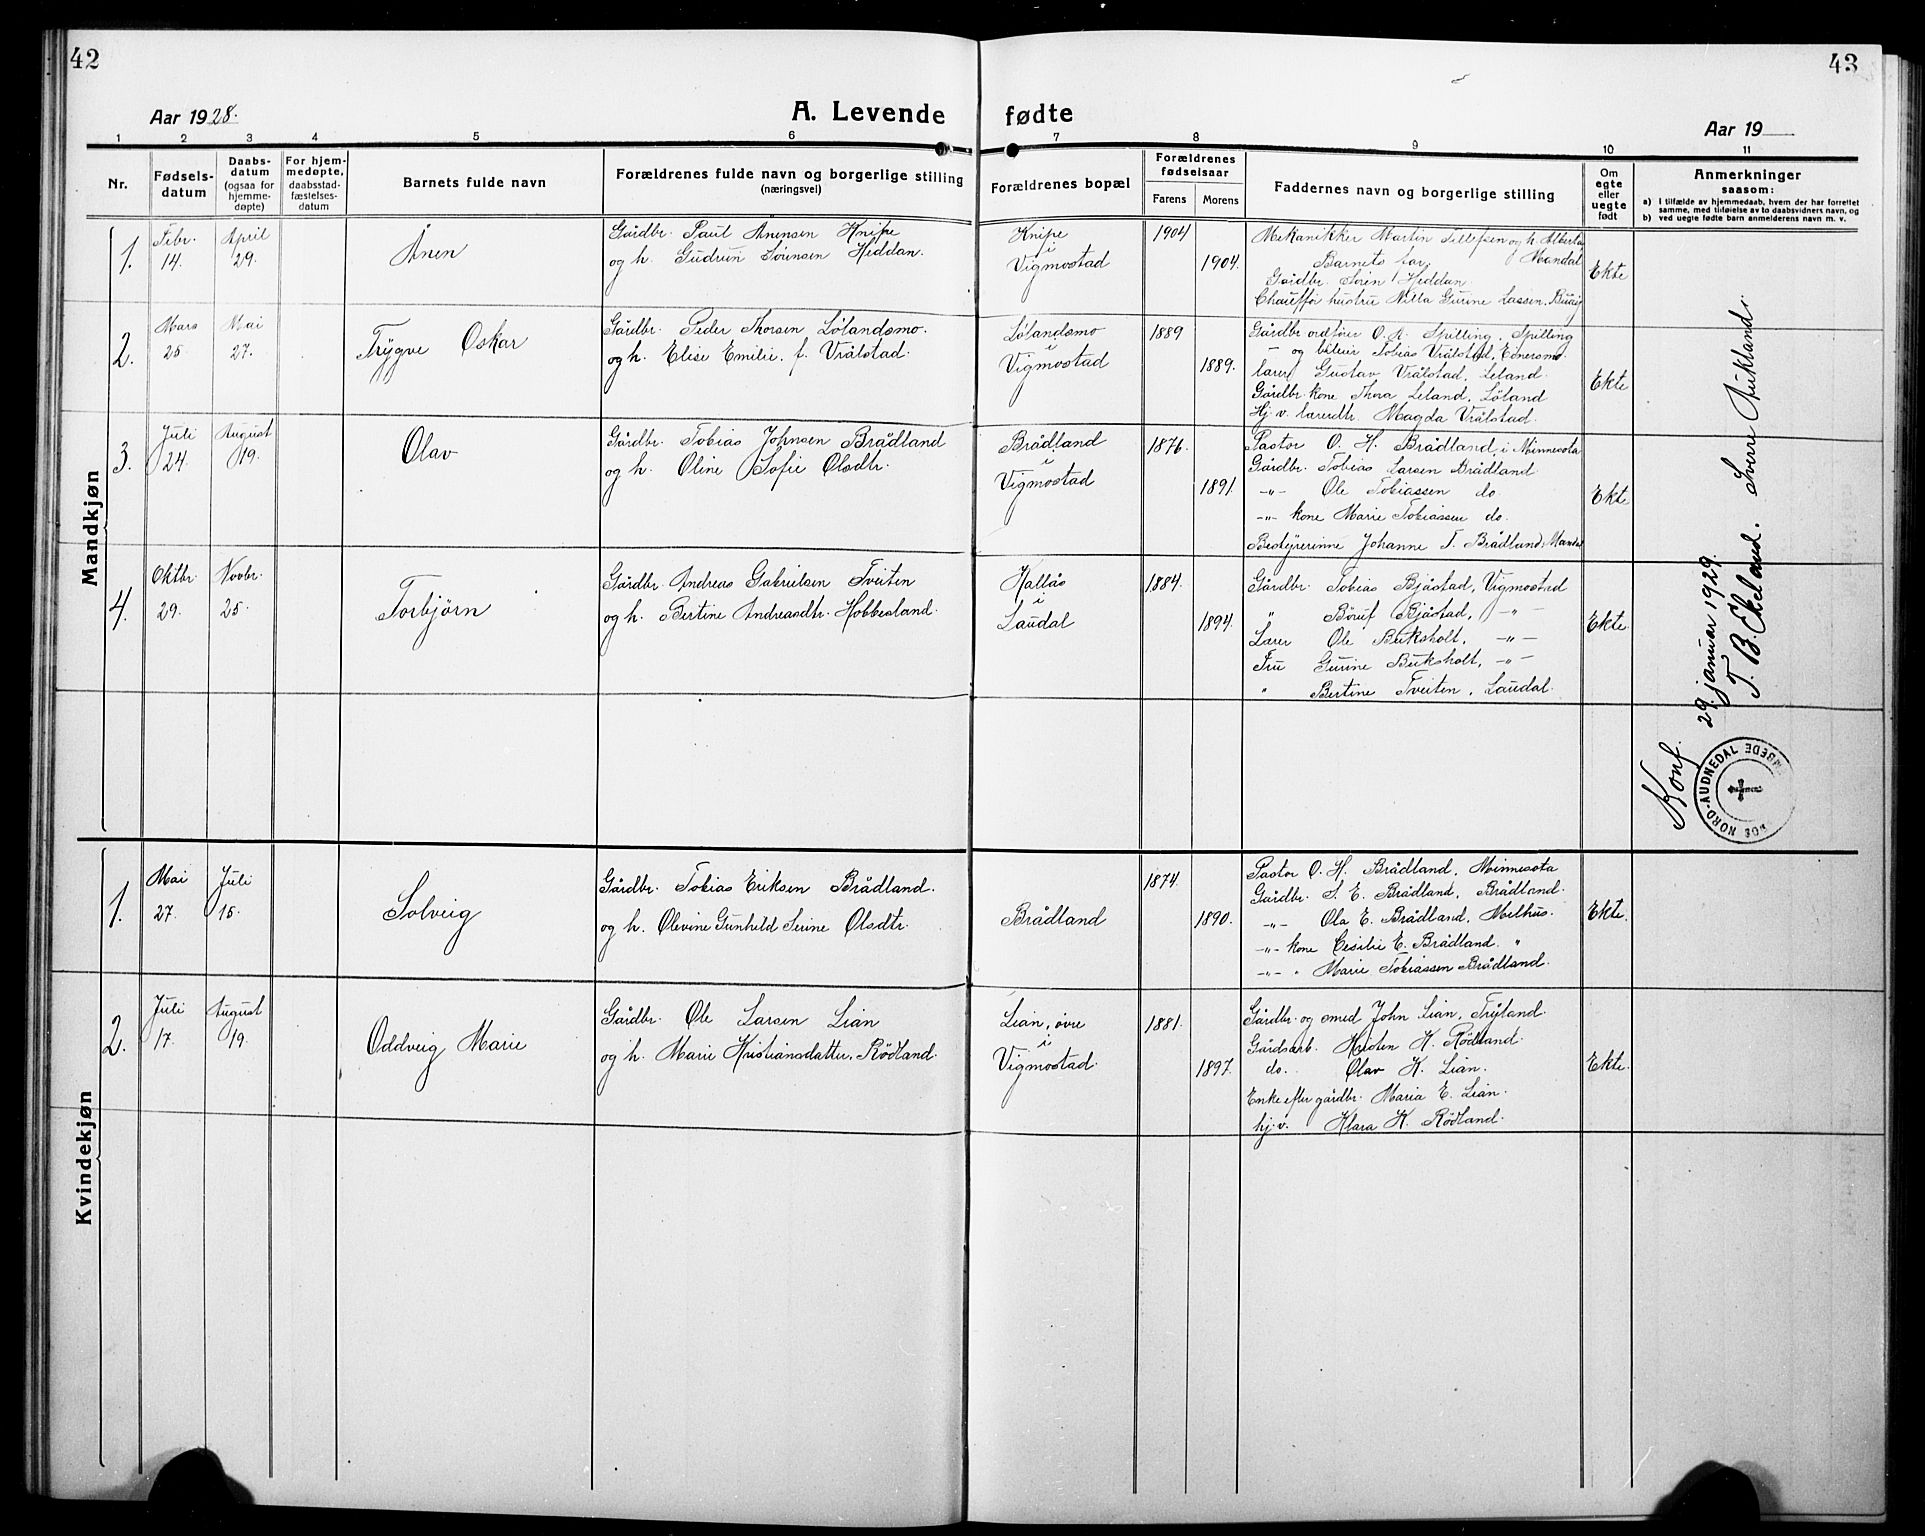 42
43
Aar 1928.
A. Levende fødte
Aar 19
1 2 3 4 5 6 7 8 9 10 11
Nr.
Fødsels-
datum
Daabs-
datum
(ogsaa for
hjemme-
døpte)
For hjem-
medøpte,
daabsstad-
fæstelses-
datum
Barnets fulde navn
Forældrenes fulde navn og borgerlige stilling
(næringsvei)
Forældrenes bopæl
Forældrenes
fødselsaar
Farens
Morens
Faddernes navn og borgerlige stilling
Om
egte
eller
uegte
født
Anmerkninger
saasom:
a) I tilfælde av hjemmedaab, hvem der har forrettet
samme, med tilføielse av to daabsvidners navn, og
b) ved uegte fødte barn anmelderens navn m. v.
Mandkjøn
1.
Febr.
14.
April
29.
Ånen
Gårdbr. Paul Anensen Knipe
og h. Gudrun Sørensen Hiddan.
Knipe
i
Vigmostad
1904
1904.
Mekanikker Martin Tellefsen og h. Alberta
Barnets far. Mandal
Gårdbr. Søren Heddan.
Chauffør hustru Nilla Gurine Lassen,
Ekte
2.
Mars
25
Mai
27.
Trygve Oskar
Gårdbr. Peder Thorsen Lølandsmo.
og h. Elise Emilie, f. Vrålstad.
Lølandsmo
Vigmostad
1889
1889.
Gårdbr. ordfører O. A. Spilling, Spilling
og Tobias Vrålstad,
lærer Gustav Vrålstad, Leland.
Gårdbr. kone Thora Leland, Løland
Hj. v. lærerdtr. Magda Vrålstad.
Ekte
3.
Juli
24.
August
19.
Olav
Gårdbr. Tobias Johnsen Brådland
og h. Oline Sofie Olsdtr.
Brådland
i
Vigmostad
1876
1891.
Pastor O. H. Brådland, i Minnesota
Gårdbr. Tobias Larsen Brådland
-"- Ole Tobiassen do.
-"- kone Marie Tobiassen do.
Bestyrerinne Johanne T. Brådland, Mandal
Ekte
4.
Oktbr.
29.
Novbr.
25.
Torbjørn
Gårdbr. Andreas Gabrielsen Tveiten
og h. Bertine Andreasdtr. Hobbesland.
Kallås
i
Laudal
1884.
1894.
Gårdbr. Tobias Bjåstad, Vigmostad
" Bjåstad, -"-
Lærer Ole Buksholt, -"-
Fru Gurine Buksholt, -"-
" Bertine Tveiten, Laudal.
Ekte.
Konf. 29. januar 1929.
T. B. Ekeland. Sverre Aukland.
NORD-AUDNEDAL
Kvindekjøn
1.
Mai
27.
Juli
15.
Solveig
Gårdbr. Tobias Eriksen Brådland.
og h. Olevine Gunhild Serine Olsdtr.
Brådland
1874.
1890.
Pastor O. H. Brådland, Minnesota
Gårdbr. S. E. Brådland, Brådland.
-"- Ola E. Brådland, Melhus.
-"- kone Cesilie E. Brådland. "
-"- " Marie Tobiassen Brådland.
Ekte.
2.
Juli
17.
August
19.
Oddveig Marie
Gårdbr. Ole Larsen Lian
og h. Marie Kristiansdatter, Rödland.
Lian, övre
i
Vigmostad.
1881.
1897.
Gårdbr. og smed John Lian, Tryland.
Gårdsarb. Kristen K. Rödland.
do. Olav K. Lian.
Enke efter gårdbr. Maria E. Lian.
hj. v. Klara K. Rödland.
Ekte.